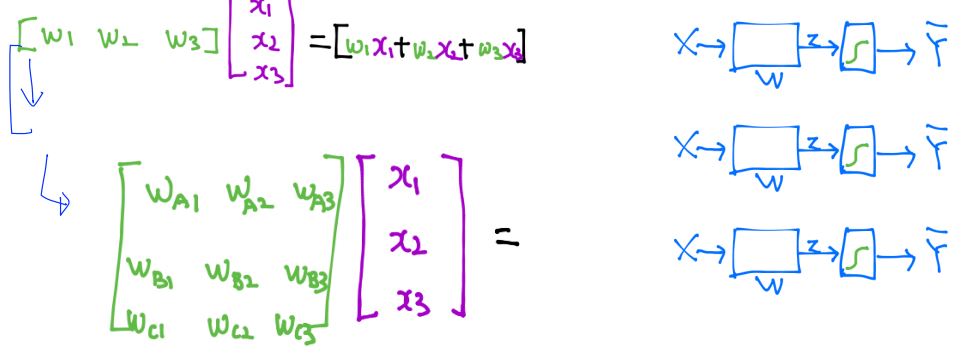 [w1 w2 w3] [x1 x2 x3] = [w1x1+w2x2+w3x3]
[wA1 wA2 wA3
wB1 wB2 wB3
wC1 wC2 wC3]
[x1
x2
x3] =
X → W z → ∫ → Y̅
X → W z → ∫ → Y̅
X → W z → ∫ → Y̅